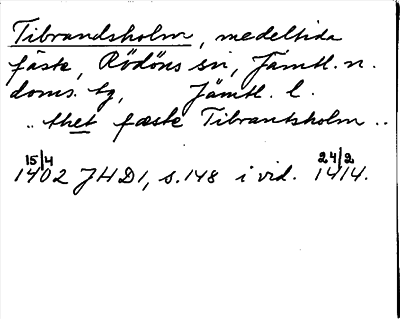 Tibrandsholm, medeltida
fäste, Rödöns sn, Jämtl. n.
doms. tg, Jämtl. l.
.. thet fæste Tibrantsholm ..
15/4 24/2
1402 JHD1, s. 148 i vid. 1414.